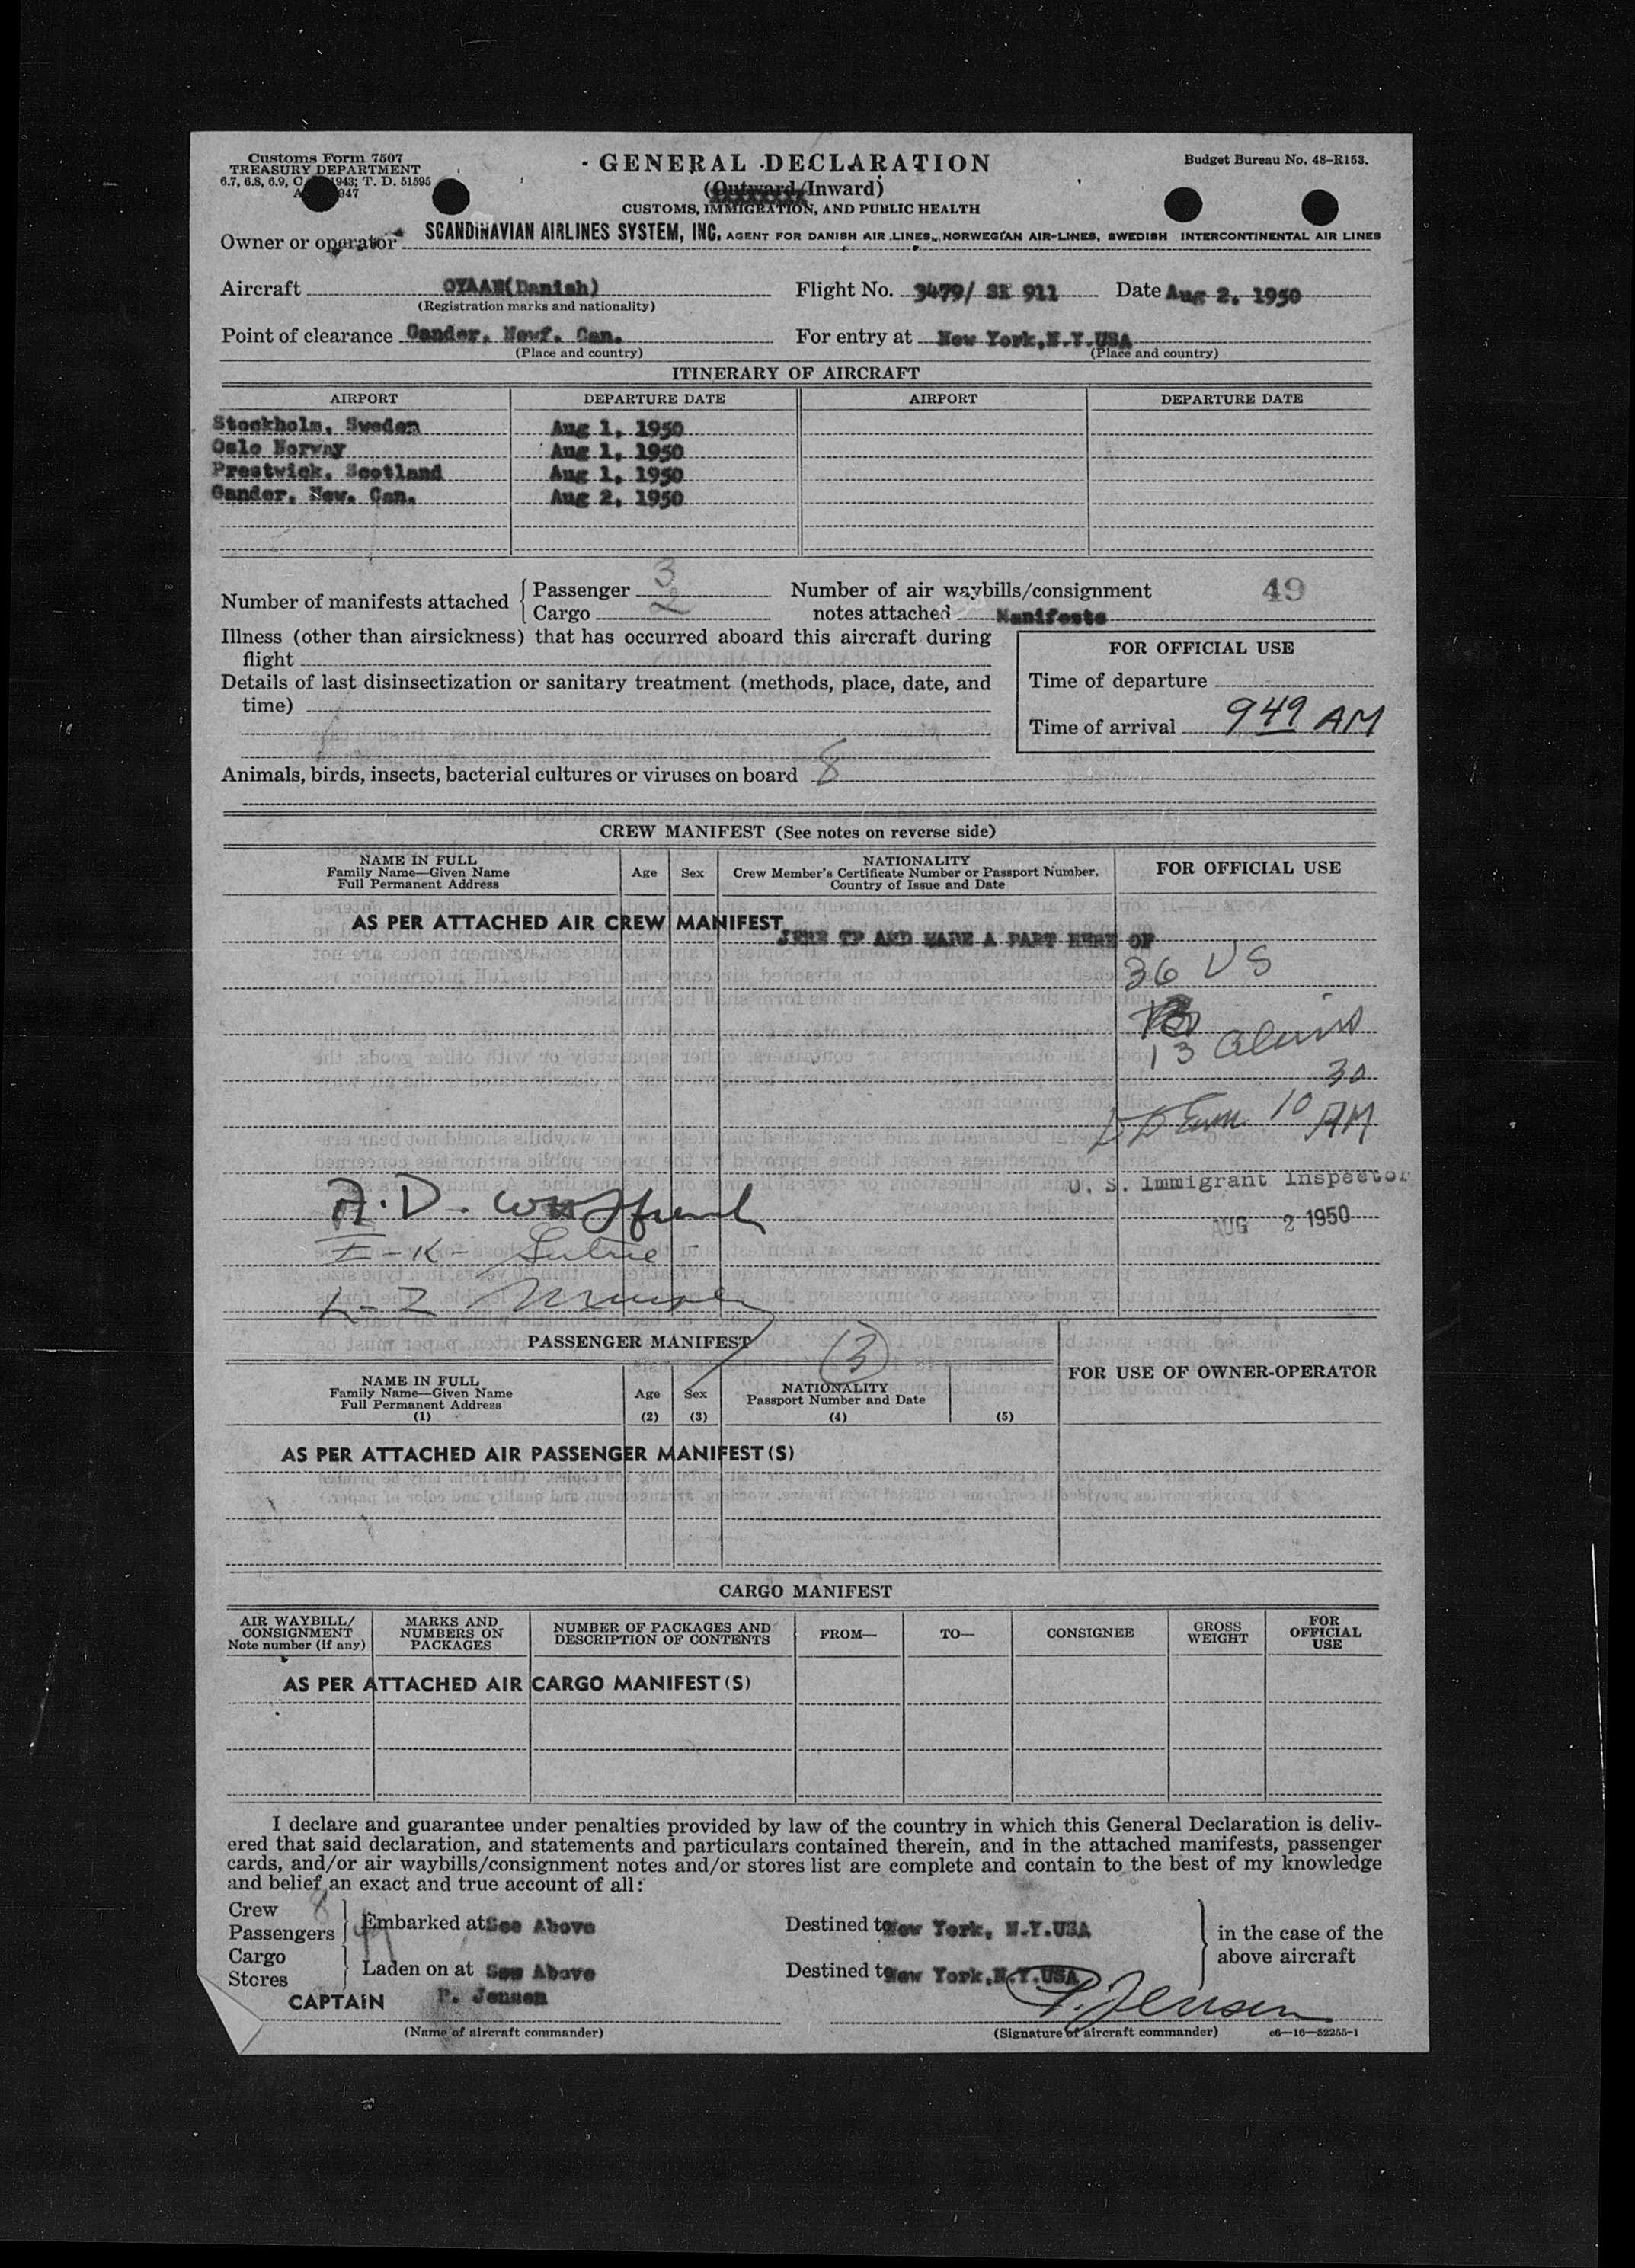 Customs Form 7507
TREASURY DEPARTMENT
6.7, 6.8, 6.9, C 1943; T. D. 51595
A 947
GENERAL DECLARATION
(Outward/Inward)
CUSTOMS, IMMIGRATION, AND PUBLIC HEALTH
Budget Bureau No. 48–R153.
Owner or operator SCANDINAVIAN AIRLINES SYSTEM, INC. AGENT FOR DANISH AIR LINES, NORWEGIAN AIR-LINES, SWEDISH INTERCONTINENTAL AIR LINES
Aircraft (Danish) Flight No. 3479/ SK 911 Date Aug 2, 1950
(Registration marks and nationality)
Point of clearance Gander, Newf. Can. For entry at New York,N.Y.USA
(Place and country) (Place and country)
ITINERARY OF AIRCRAFT
AIRPORT DEPARTURE DATE AIRPORT DEPARTURE DATE
Stockholm, Sweden Aug 1, 1950
Oslo Norway Aug 1, 1950
Prestwick, Scotland Aug 1, 1950
Gander, New. Can. Aug 2, 1950
Number of manifests attached { Passenger 3
Cargo 2
Number of air waybills/consignment 49
notes attached Manifests
Illness (other than airsickness) that has occurred aboard this aircraft during
flight
Details of last disinsectization or sanitary treatment (methods, place, date, and
time)
FOR OFFICIAL USE
Time of departure
Time of arrival 949 AM
Animals, birds, insects, bacterial cultures or viruses on board
CREW MANIFEST (See notes on reverse side)
NAME IN FULL
Family Name—Given Name
Full Permanent Address
Age
Sex
NATIONALITY
Crew Member's Certificate Number or Passport Number,
Country of Issue and Date
FOR OFFICIAL USE
AS PER ATTACHED AIR CREW MANIFEST
AND MADE A PART HERE OF
36 US
13 aliens
30
10 AM
U. S. Immigrant Inspector
AUG 2 1950
A.D.
I - K -
L - Z
PASSENGER MANIFEST
13
FOR USE OF OWNER-OPERATOR
NAME IN FULL
Family Name—Given Name
Full Permanent Address
(1)
Age
(2)
Sex
(3)
NATIONALITY
Passport Number and Date
(4)
(5)
AS PER ATTACHED AIR PASSENGER MANIFEST(S)
CARGO MANIFEST
AIR WAYBILL/
CONSIGNMENT
Note number (if any)
MARKS AND
NUMBERS ON
PACKAGES
NUMBER OF PACKAGES AND
DESCRIPTION OF CONTENTS
FROM—
TO—
CONSIGNEE
GROSS
WEIGHT
FOR
OFFICIAL
USE
AS PER ATTACHED AIR CARGO MANIFEST(S)
I declare and guarantee under penalties provided by law of the country in which this General Declaration is deliv-
ered that said declaration, and statements and particulars contained therein, and in the attached manifests, passenger
cards, and/or air waybills/consignment notes and/or stores list are complete and contain to the best of my knowledge
and belief an exact and true account of all:
Crew 8
Passengers 49
Embarked at See Above Destined to New York, N.Y.USA
Cargo
Stores
Laden on at See Above Destined to New York,N.Y.USA
in the case of the
above aircraft
CAPTAIN P. Jensen
P. Jensen
(Name of aircraft commander) (Signature of aircraft commander) c6—16—52255-1